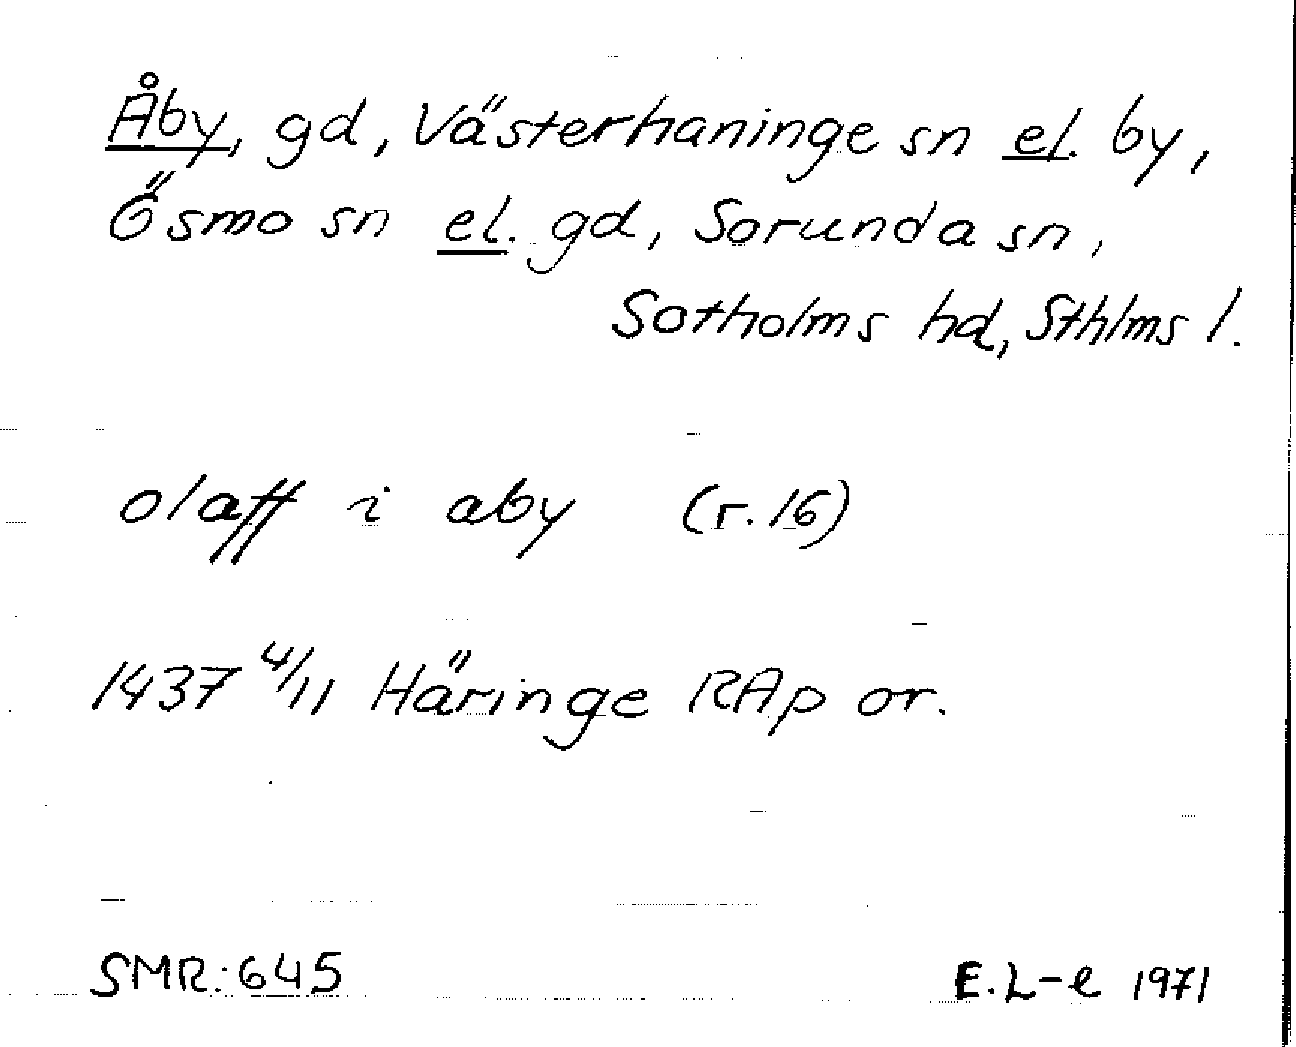 Åby, gd, Västerhaninge sn el. by,
Ösmo sn el. gd, Sorunda sn,
Sotholms hd, Sthlms l.
olaff i aby (r. 16)
1437 4/11 Häringe RAp or.
SMR: 645
E. L-e 1971